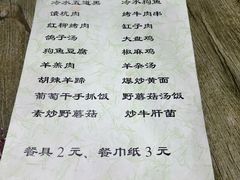 冷水五道黑 冷水狗鱼
馕坑肉 烤牛肉串
红柳烤肉 缸子肉
鸽子汤 大盘鸡
狗鱼豆腐 椒麻鸡
羊羔肉 羊杂汤
胡辣羊蹄 爆炒黄面
葡萄干手抓饭 野蘑菇汤饭
素炒野蘑菇 炒牛肝菌
餐具2元、餐巾纸3元